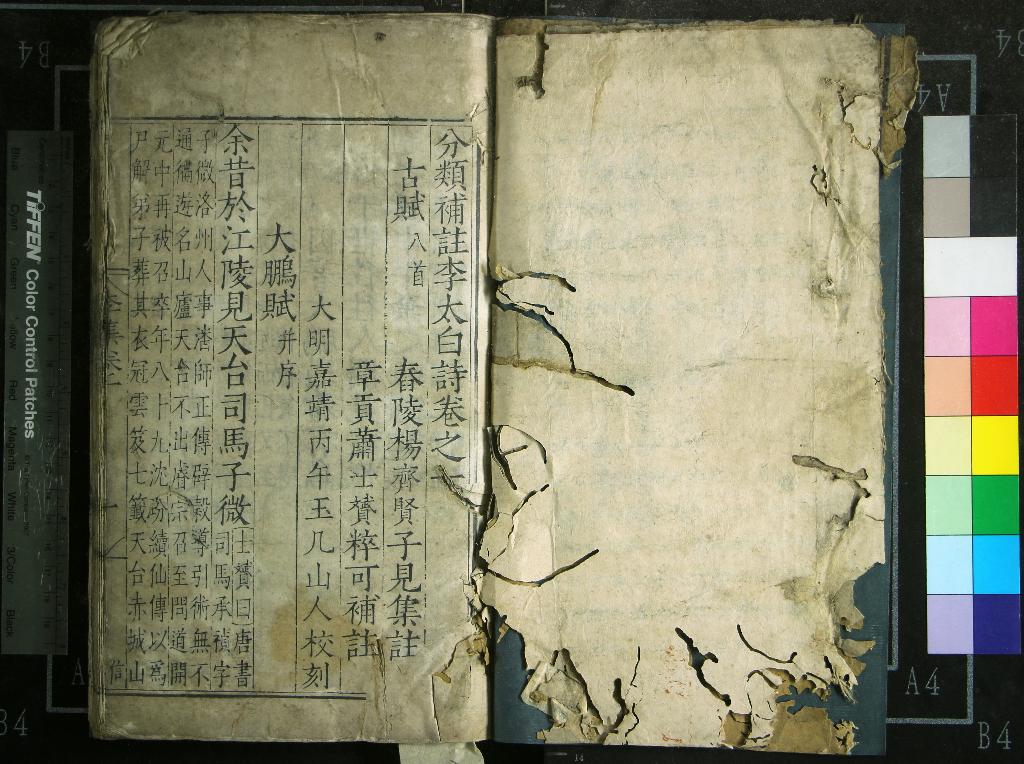 分類補註李太白詩卷之一
古賦 八首
舂陵楊齊賢子見集註
章貢蕭士贇粹可補註
大明嘉靖丙午玉几山人校刻
大鵬賦 并序
余昔於江陵見天台司馬子微
士贇曰唐書
司馬承禎字
子微洛州人事潘師正傳辟穀導引術無不
通徧遊名山廬天台不出睿宗召至問道開
元中再被召卒年八十九沈汾續仙傳以爲
尸解弟子葬其衣冠雲笈七籤天台赤城山
李集卷一
一
信
TIFFEN Color Control Patches
Blue
Cyan
Green
Yellow
Red
Magenta
White
3/Color
Black
B4
A4
B4
A4
A4
B4
B4
14